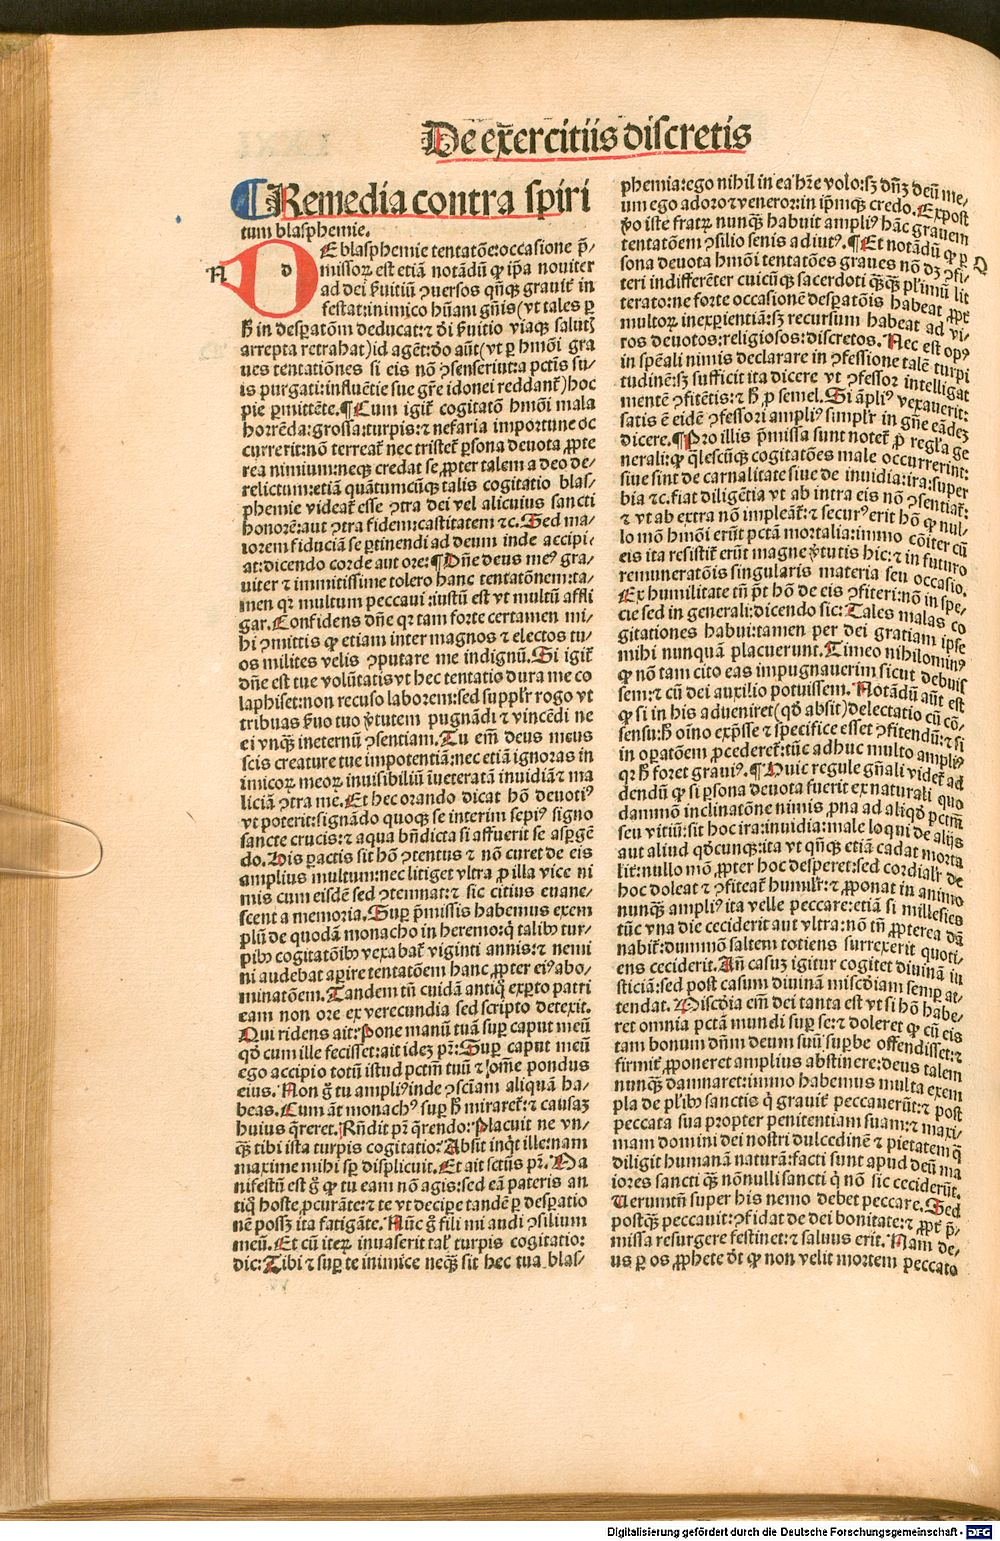 De exercitiis discretis
¶ Remedia contra spiri
tum blasphemie.
N
DE blasphemie tentatōe: occasione p̄⸗
missoꝝ est etiā notādū ꝙ ip̄a nouiter
ad dei ẜuitiū ꝯuersos qn̄qꝫ grauit᷑ in
festat: inimico hūani gn̄is (vt tales ꝑ
h̄ in desꝑatōm deducat: ⁊ di ẜuitio viaqꝫ salutꝭ
arrepta retrahat) id agēt: ꝺo aūt (vt ꝑ hmōi gra
ues tentatiōnes si eis nō ꝯsenserint: a pctīs su⸗
is purgati: influētie sue gr̄e idonei reddant᷑) hoc
pie ꝑmittēte. ¶ Cum igit᷑ cogitatō hmōi mala
horrēda: grossa: turpis: ⁊ nefaria importune oc
currerit: nō terreat᷑ nec tristet᷑ ꝑsona deuota ꝓpte
rea nimium: neqꝫ credat se ꝓpter talem a deo de⸗
relictum: etiā quātumcūqꝫ talis cogitatio blas⸗
phemie videat᷑ esse ꝯtra dei vel alicuius sancti
honorē: aut ꝯtra fidem: castitatem ⁊c. Sed ma⸗
iorem fiduciā se ꝑtinendi ad deum inde accipi⸗
at: dicendo corde aut ore: ¶ Dn̄e deus meꝰ gra⸗
uiter ⁊ immitissime tolero hanc tentatōnem: ta⸗
men qꝛ multum peccaui: iustū est vt multū affli
gar. Confidens dn̄e qꝛ tam forte certamen mi⸗
hi ꝯmittis ꝙ etiam inter magnos ⁊ electos tu⸗
os milites velis ꝯputare me indignū. Si igit᷑
dn̄e est tue volūtatis vt hec tentatis dura me co
laphiset: non recuso laborem: sed suppl'r rogo vt
tribuas ẜuo tuo v̓tutem pugnādi ⁊ vincēdi ne
ei vnqꝫ ineternū ꝯsentiam. Tu em̄ deus meus
scis creature tue impotentiā: nec etiā ignoras in
imicoꝝ meoꝝ inuisibiliū īueteratā inuidiā ⁊ ma
liciā ꝯtra me. Et hec orando dicat hō deuotiꝰ
vt poterit: signādo quoqꝫ se interim sepiꝰ signo
sancte crucis: ⁊ aqua bn̄dicta si affuerit se asꝑgē
do. His ꝑactis sit hō ꝯtentus ⁊ nō curet de eis
amplius multum: nec litiget vltra ꝓ illa vice ni
mis cum eisdē sed ꝯtemnat: ⁊ sic citius euane⸗
scent a memoria. Suꝑ p̄missis habemus exem
plū de quodā monacho in heremo: q̇ talibꝰ tur⸗
pibꝰ cogitatōibꝰ vexabat᷑ viginti annis: ⁊ nemi
ni audebat aꝑire tentatōem hanc ꝓpter eiꝰ abo⸗
minatōem. Tandem tn̄ cuidā antiq̇ exꝑto patri
eam non ore ex verecundia sed scripto detexit.
Qui ridens ait: Pone manū tuā suꝑ caput meū
qd̄ cum ille fecisset: ait idez pr̄: Suꝑ caput meū
ego accipio totū istud pctm̄ tuū ⁊ om̄e pondus
eius. Non ḡ tu ampliꝰ inde ꝯsciam aliquā ha⸗
beas. Cum aūt monachꝰ suꝑ h̄ miraret᷑: ⁊ causaz
huius q̄reret. Rn̄dit pr̄ q̄rendo: Placuit ne vn⸗
qꝫ tibi ista turpis cogitatio? Absit inq̇t ille: nam
maxime mihi sꝑ displicuit. Et ait sctūs pr̄. Ma
nifestū est ḡ ꝙ tu eam nō agis: sed eā pateris an
tiq̇ hoste ꝓcurāte: ⁊ te vt deciꝑe tandē ꝑ desꝑatio
nē possꝫ ita fatigāte. Nūc ḡ fili mi audi ꝯsilium
meū. Et cū iteꝝ inuaserit tal' turpis cogitatio:
dic: Tibi ⁊ suꝑ te inimice neqꝫ sit hec tua blas⸗
phemia: ego nihil in ea hr̄e volo: sꝫ dn̄ꝫ deū me⸗
um ego adoro ⁊ veneror: in ip̄mqꝫ credo. Expost
v̓o iste fratꝝ nunqꝫ habuit ampliꝰ hāc grauem
tentatōem ꝯsilio senis adiutꝰ. ¶ Et notādū ꝙ ꝑ
O
sona deuota hmōi tentatōes graues nō dꝫ ꝯfi⸗
teri indifferēter cuicūqꝫ sacerdoti qꝫqꝫ pl'imū lit
terato: ne forte occasionē desꝑatōis habeat ꝓpt᷑
multoꝝ inexꝑientiā: sꝫ recursum habeat ad vi⸗
ros deuotos: religiosos: discretos. Nec est opꝰ
in spēali nimis declarare in ꝯfessione talē turpi
tudinē: sꝫ sufficit ita dicere vt ꝯfessor intelligat
mentē ꝯfitētis: ⁊ h̄ ꝓ semel. Si āpliꝰ vexauerit:
satis ē eidē ꝯfessori ampliꝰ simpl'r in gn̄e eādez
dicere. ¶ Pro illis p̄missa sunt notet᷑ ꝓ regl'a ge
nerali: ꝙ q̄lescūqꝫ cogitatōes male occurrerint:
siue sint de carnalitate siue de inuidia: ira: super
bia ⁊c. fiat diligētia vt ab intra eis nō ꝯsentiat᷑:
⁊ vt ab extra nō impleāt᷑: ⁊ securꝰ erit hō ꝙ nul⸗
lo mō hmōi erūt pctā mortalia: immo cōiter cū
eis ita resistit᷑ erūt magne v̓tutis hic: ⁊ in futuro
remuneratōis singularis materia seu occasio.
Ex humilitate tn̄ p̄t hō de eis ꝯfiteri: nō in spe⸗
cie sed in generali: dicendo sic: Tales malas co
gitationes habui: tamen per dei gratiam ipse
mihi nunquā placuerunt. Timeo nihilominꝰ
ꝙ nō tam cito eas impugnauerim sicut debuis
sem: ⁊ cū dei auxilio potuissem. Notādū aūt est
ꝙ si in his adueniret (qd̄ absit) delectatio cū cō⸗
sensu: h̄ oīno exp̄sse ⁊ specifice esset ꝯfitendū: ⁊ si
in oꝑatōem ꝓcederet᷑: tūc adhuc multo ampliꝰ
qꝛ h̄ foret grauiꝰ. ¶ Huic regule gn̄ali videt᷑ ad
dendū ꝙ si ꝑsona deuota fuerit ex naturali quo
dammō inclinatōne nimis ꝓna ad aliqd̄ pctm̄
seu vitiū: sit hoc ira: inuidia: male loqui de alijs
aut aliud qd̄cunqꝫ: ita vt qn̄qꝫ etiā cadat morta
lit᷑: nullo mō ꝓpter hoc desperet: sed cordial'r de
hoc doleat ⁊ ꝯfiteat᷑ humil'r: ⁊ ꝓponat in animo
nunqꝫ ampliꝰ ita velle peccare: etiā si millesies
tūc vna die ceciderit aut vltra: nō tn̄ ꝓpterea dā
nabit᷑: dummō saltem totiens surrexerit quoti⸗
ens ceciderit. In casuz igitur cogitet diuinā iu
sticiā: sed post casum diuinā miscd̓iam semꝑ at⸗
tendat. Miscd̓ia em̄ dei tanta est vt si hō habe⸗
ret omnia pctā mundi suꝑ se: ⁊ doleret ꝙ cū eis
tam bonum dn̄m deum suū suꝑbe offendisset: ⁊
firmit᷑ ꝓponeret amplius abstinere: deus talem
nunqꝫ damnaret: immo habemus multa exem
pla de pl'ibꝰ sanctis q̇ grauit᷑ peccauerūt: ⁊ post
peccata sua propter penitentiam suam: ⁊ maxi⸗
mam domini dei nostri dulcedinē ⁊ pietatem q̄
diligit humanā naturā: facti sunt apud deū ma
iores sancti qꝫ nōnulli sancti q̇ nō sic ceciderūt.
Uerumtn̄ super his nemo debet peccare. Sed
postqꝫ peccauit: ꝯfidat de dei bonitate: ⁊ ꝓpt᷑ p̄⸗
missa resurgere festinet: ⁊ saluus erit. Nam de⸗
us ꝑ os ꝓphete dt̄ ꝙ non velit mortem peccato
Digitalisierung gefördert durch die Deutsche Forschungsgemeinschaft - DFG